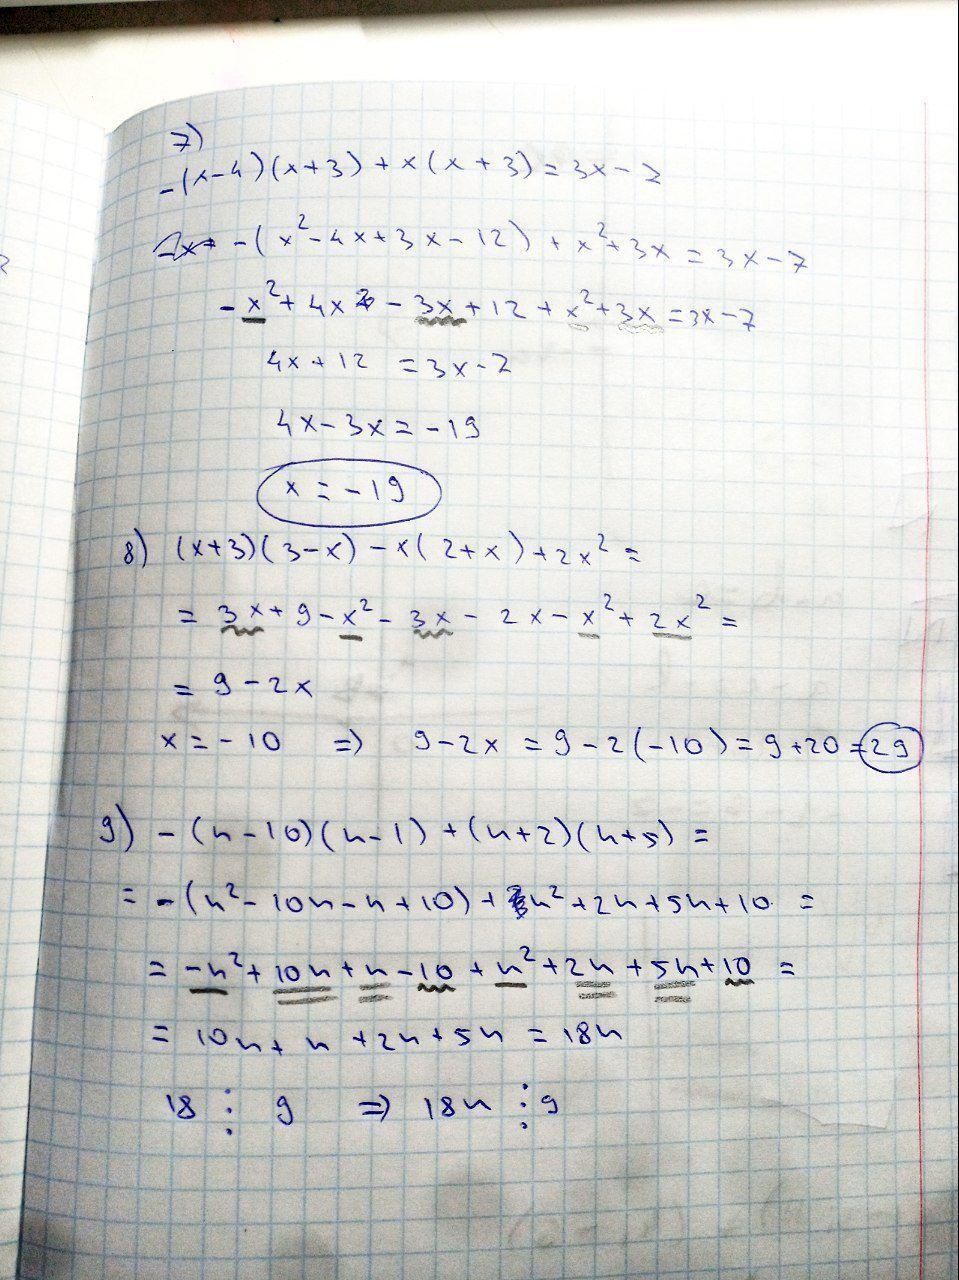 7)
-(x-4)(x+3)+x(x+3)=3x-7
-(x²-4x+3x-12)+x²+3x=3x-7
-x²+4x-3x+12+x²+3x=3x-7
4x+12=3x-7
4x-3x=-19
x=-19
8) (x+3)(3-x)-x(2+x)+2x²=
=3x+9-x²-3x-2x-x²+2x²=
=9-2x
x=-10 => 9-2x=9-2(-10)=9+20=29
9) -(n-10)(n-1)+(n+2)(n+5)=
=-(n²-10n-n+10)+n²+2n+5n+10=
=-n²+10n+n-10+n²+2n+5n+10=
=10n+n+2n+5n=18n
18⋮9 => 18n⋮9